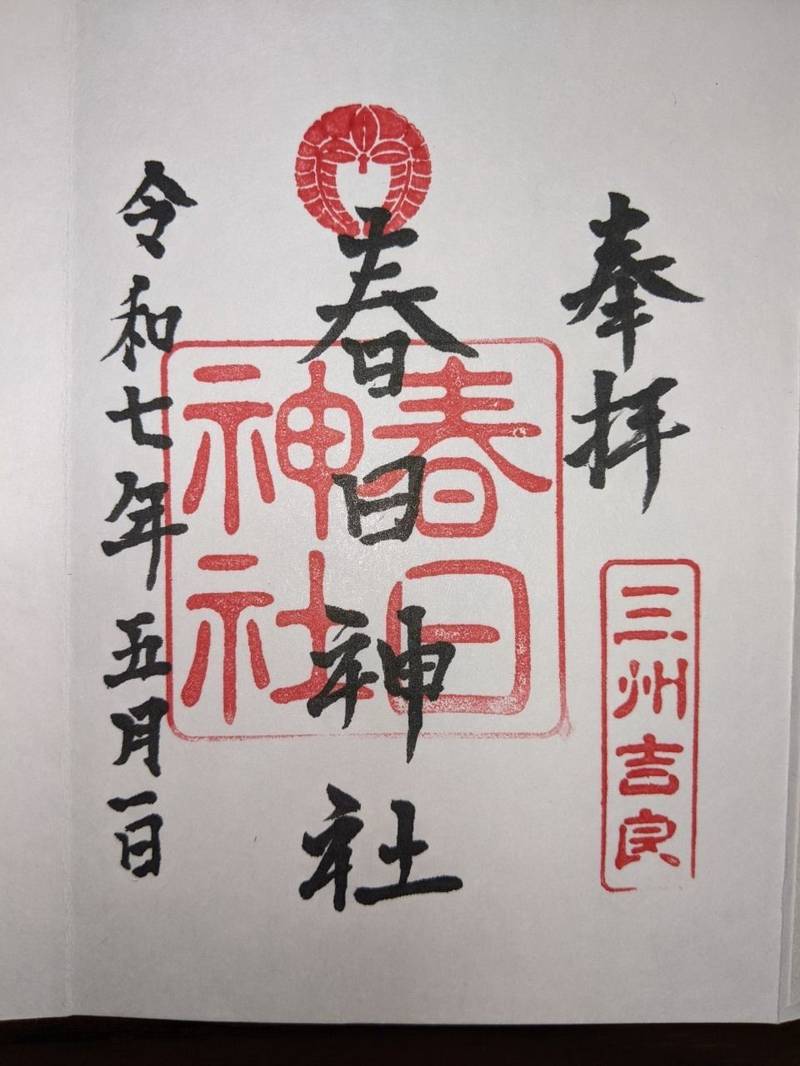 奉拝
三州吉良
春日神社
春日
神社
令和七年五月一日